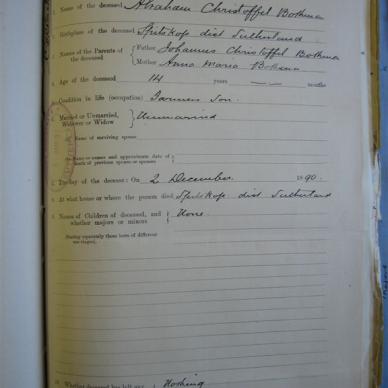 Name of the deceased Abraham Christoffel Bothma
Birthplace of the deceased Spitskop dist Sutherland
Names of the Parents of the deceased { Father Johannes Christoffel Bothma
Mother Anna Maria Bothma
Age of the deceased 14 years — months
Condition in life (occupation) Farmers Son
Married or Unmarried, Widower or Widow } Unmarried
Name of surviving spouse
Name or names and approximate date of death of previous spouse or spouses
The day of the decease: On 2 December 1890.
At what house or where the person died Spitskop dist Sutherland
Names of Children of deceased, and whether majors or minors { None
Stating separately those born of different marriages.
Whether deceased has left any Nothing